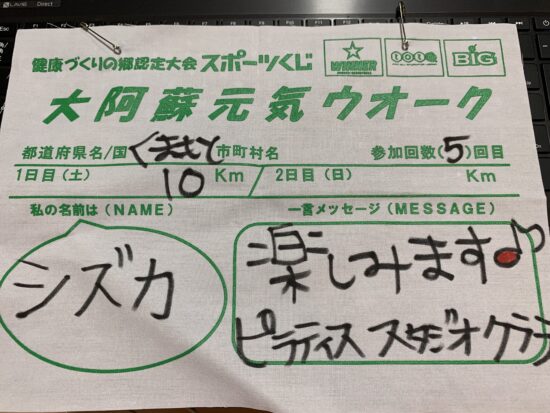 健康づくりの郷認定大会 スポーツくじ WINNER toto BIG
大阿蘇元気ウオーク
都道府県名/国 くまもと 市町村名 参加回数(5)回目
1日目(土) 10 Km / 2日目(日) Km
私の名前は(NAME)
シズカ
一言メッセージ(MESSAGE)
楽しみます♪
ピラティス スタジオ クララ